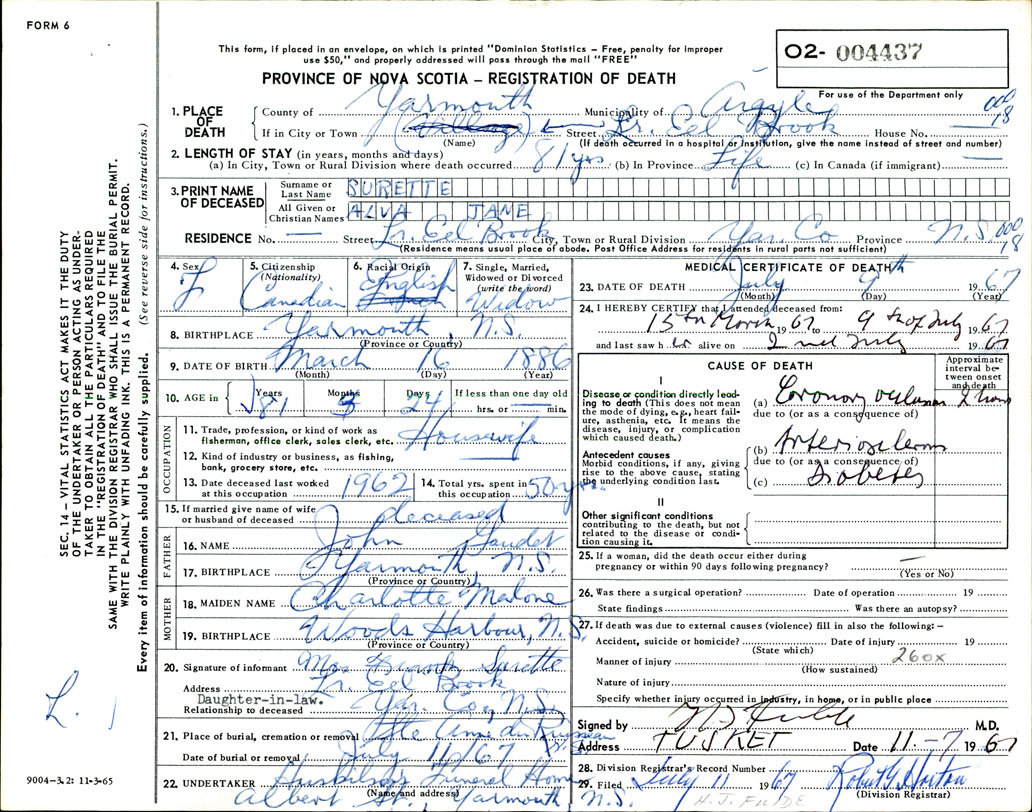 FORM 6
This form, if placed in an envelope, on which is printed "Dominion Statistics – Free, penalty for improper
use $50," and properly addressed will pass through the mail "FREE"
O2- 004437
PROVINCE OF NOVA SCOTIA – REGISTRATION OF DEATH
For use of the Department only
1. PLACE OF DEATH { County of Yarmouth Municipality of Argyle 000 18
If in City or Town (Village) Street Lr. Eel Brook House No. —
(Name) (If death occurred in a hospital or institution, give the name instead of street and number)
2. LENGTH OF STAY (in years, months and days)
(a) In City, Town or Rural Division where death occurred 81 yrs. (b) In Province Life (c) In Canada (if immigrant) —
3. PRINT NAME OF DECEASED { Surname or Last Name SURETTE
All Given or Christian Names ALVA JANE
RESIDENCE No. — Street Lr. Eel Brook City, Town or Rural Division Yar. Co Province N.S. 000 18
(Residence means usual place of abode. Post Office Address for residents in rural parts not sufficient)
4. Sex F
5. Citizenship (Nationality) Canadian
6. Racial Origin English
7. Single, Married, Widowed or Divorced (write the word) Widow
8. BIRTHPLACE Yarmouth, N.S.
(Province or County)
9. DATE OF BIRTH March 16 1886
(Month) (Day) (Year)
10. AGE in { Years 81 Months 3 Days 24 If less than one day old
hrs. or min.
OCCUPATION
11. Trade, profession, or kind of work as fisherman, office clerk, sales clerk, etc. Housewife
12. Kind of industry or business, as fishing, bank, grocery store, etc.
13. Date deceased last worked at this occupation 1962
14. Total yrs. spent in this occupation 50 yrs.
15. If married give name of wife or husband of deceased deceased
FATHER
16. NAME John Gaudet
17. BIRTHPLACE Yarmouth, N.S.
(Province or Country)
MOTHER
18. MAIDEN NAME Charlotte Malone
19. BIRTHPLACE Woods Harbour, N.S.
(Province or Country)
20. Signature of informant Mrs. Surette
Address Lr. Eel Brook
Daughter-in-law. Yar. Co., N.S.
Relationship to deceased
21. Place of burial, cremation or removal Ste Anne du
Date of burial or removal July 11/67
22. UNDERTAKER Funeral Home
(Name and address)
Albert St. Yarmouth N.S.
MEDICAL CERTIFICATE OF DEATH
23. DATE OF DEATH July 9th 1967
(Month) (Day) (Year)
24. I HEREBY CERTIFY that I attended deceased from:
15th March 1967 to 9th of July 1967
and last saw her alive on 2nd July 1967
CAUSE OF DEATH
Approximate interval between onset and death
I
Disease or condition directly leading to death (This does not mean the mode of dying, e.g., heart failure, asthenia, etc. It means the disease, injury, or complication which caused death.)
(a) Coronary occlusion 2 hours
due to (or as a consequence of)
Antecedent causes
Morbid conditions, if any, giving rise to the above cause, stating the underlying condition last.
(b) Arteriosclerosis
due to (or as a consequence of)
(c) Diabetes
II
Other significant conditions
contributing to the death, but not related to the disease or condition causing it.
25. If a woman, did the death occur either during
pregnancy or within 90 days following pregnancy? —
(Yes or No)
26. Was there a surgical operation? Date of operation 19
State findings Was there an autopsy?
27. If death was due to external causes (violence) fill in also the following: –
Accident, suicide or homicide? Date of injury 19
(State which)
Manner of injury 260X
(How sustained)
Nature of injury
Specify whether injury occurred in industry, in home, or in public place
Signed by M.D.
Address TUSKET Date 11–7 1967
28. Division Registrar's Record Number
29. Filed July 11 1967 Robert G. Horton
(Division Registrar)
H. J. FULDE
SEC. 14 – VITAL STATISTICS ACT MAKES IT THE DUTY
OF THE UNDERTAKER OR PERSON ACTING AS UNDER-
TAKER TO OBTAIN ALL THE PARTICULARS REQUIRED
IN THE "REGISTRATION OF DEATH" AND TO FILE THE
SAME WITH THE DIVISION REGISTRAR WHO SHALL ISSUE THE BURIAL PERMIT.
WRITE PLAINLY WITH UNFADING INK. THIS IS A PERMANENT RECORD.
Every item of information should be carefully supplied. (See reverse side for instructions.)
L.
9004-3.2: 11-3-65